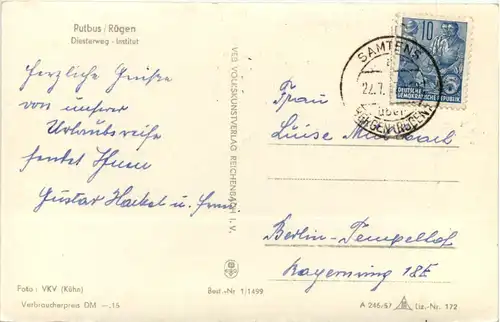 Putbus/Rügen
Diesterweg-Institut
Herzliche Grüße
von unserer
Urlaubsreise
sendet Ihnen
Gustav Hackel u. Frau
Foto: VKV (Kühn)
Verbraucherpreis DM —.15
VEB VOLKSKUNSTVERLAG REICHENBACH I. V.
Best.-Nr 1/1499
10
DEUTSCHE
DEMOKRATISCHE REPUBLIK
SAMTENS
22.7.
über
BERGEN (RÜGEN)
Frau
Luise
Berlin-Tempelhof
Bayernring 18E
A 246/57
Liz.-Nr. 172